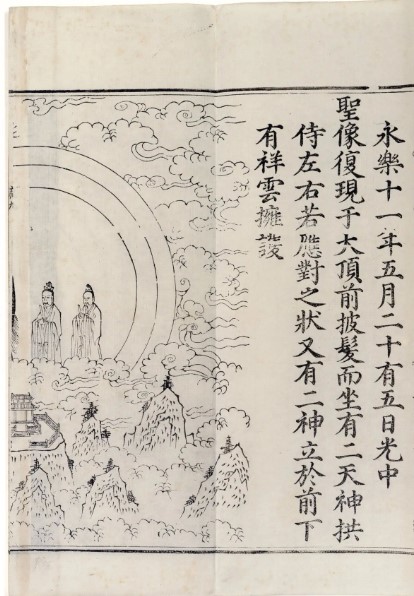 永樂十一年五月二十有五日光中
聖像復現于大頂前披髮而坐有二天神拱
侍左右若應對之狀又有二神立於前下
有祥雲擁護